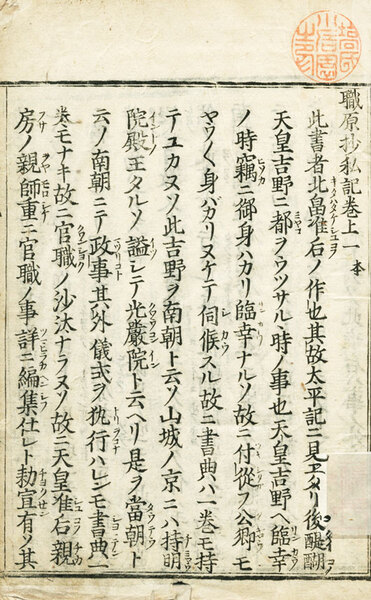 職原抄私記巻上一 本
此書者北畠准后ノ作也其故太平記ニ見エタリ後醍醐
天皇吉野ニ都ヲウツサル丶時ノ事也天皇吉野ヘ臨幸
ノ時竊ニ御身ハカリ臨幸ナルソ故ニ付從フ公卿モ
ヤウ〱身バカリヌケテ伺候スル故ニ書典ハ一巻モ持
テユカヌソ此吉野ヲ南朝ト云ソ山城ノ京ニハ持明
院殿王タルソ謚シテ光嚴院ト云ヘリ是ヲ當朝ト
云ノ南朝ニテ政事其外儀式ヲ執行ハレンモ書典一
巻モナキ故ニ官職ノ沙汰ナラヌソ故ニ天皇准后親
房ノ親師重ニ官職ノ事詳ニ編集仕レト勅宣有ソ其